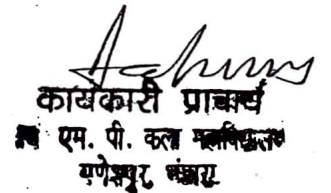 कार्यकारी प्राचार्य
एम. पी. कला महाविद्यालय
गणेशपुर, भंडारा